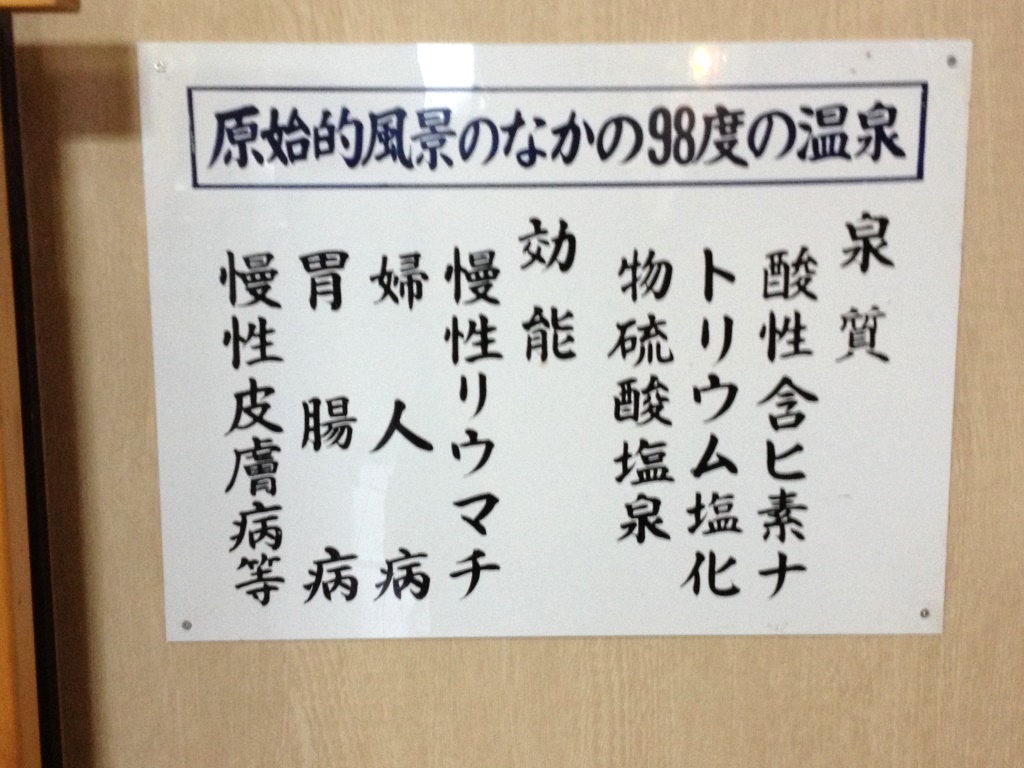 原始的風景のなかの98度の温泉
泉質
酸性含ヒ素ナ
トリウム塩化
物硫酸塩泉
効能
慢性リウマチ
婦人病
胃腸病
慢性皮膚病等